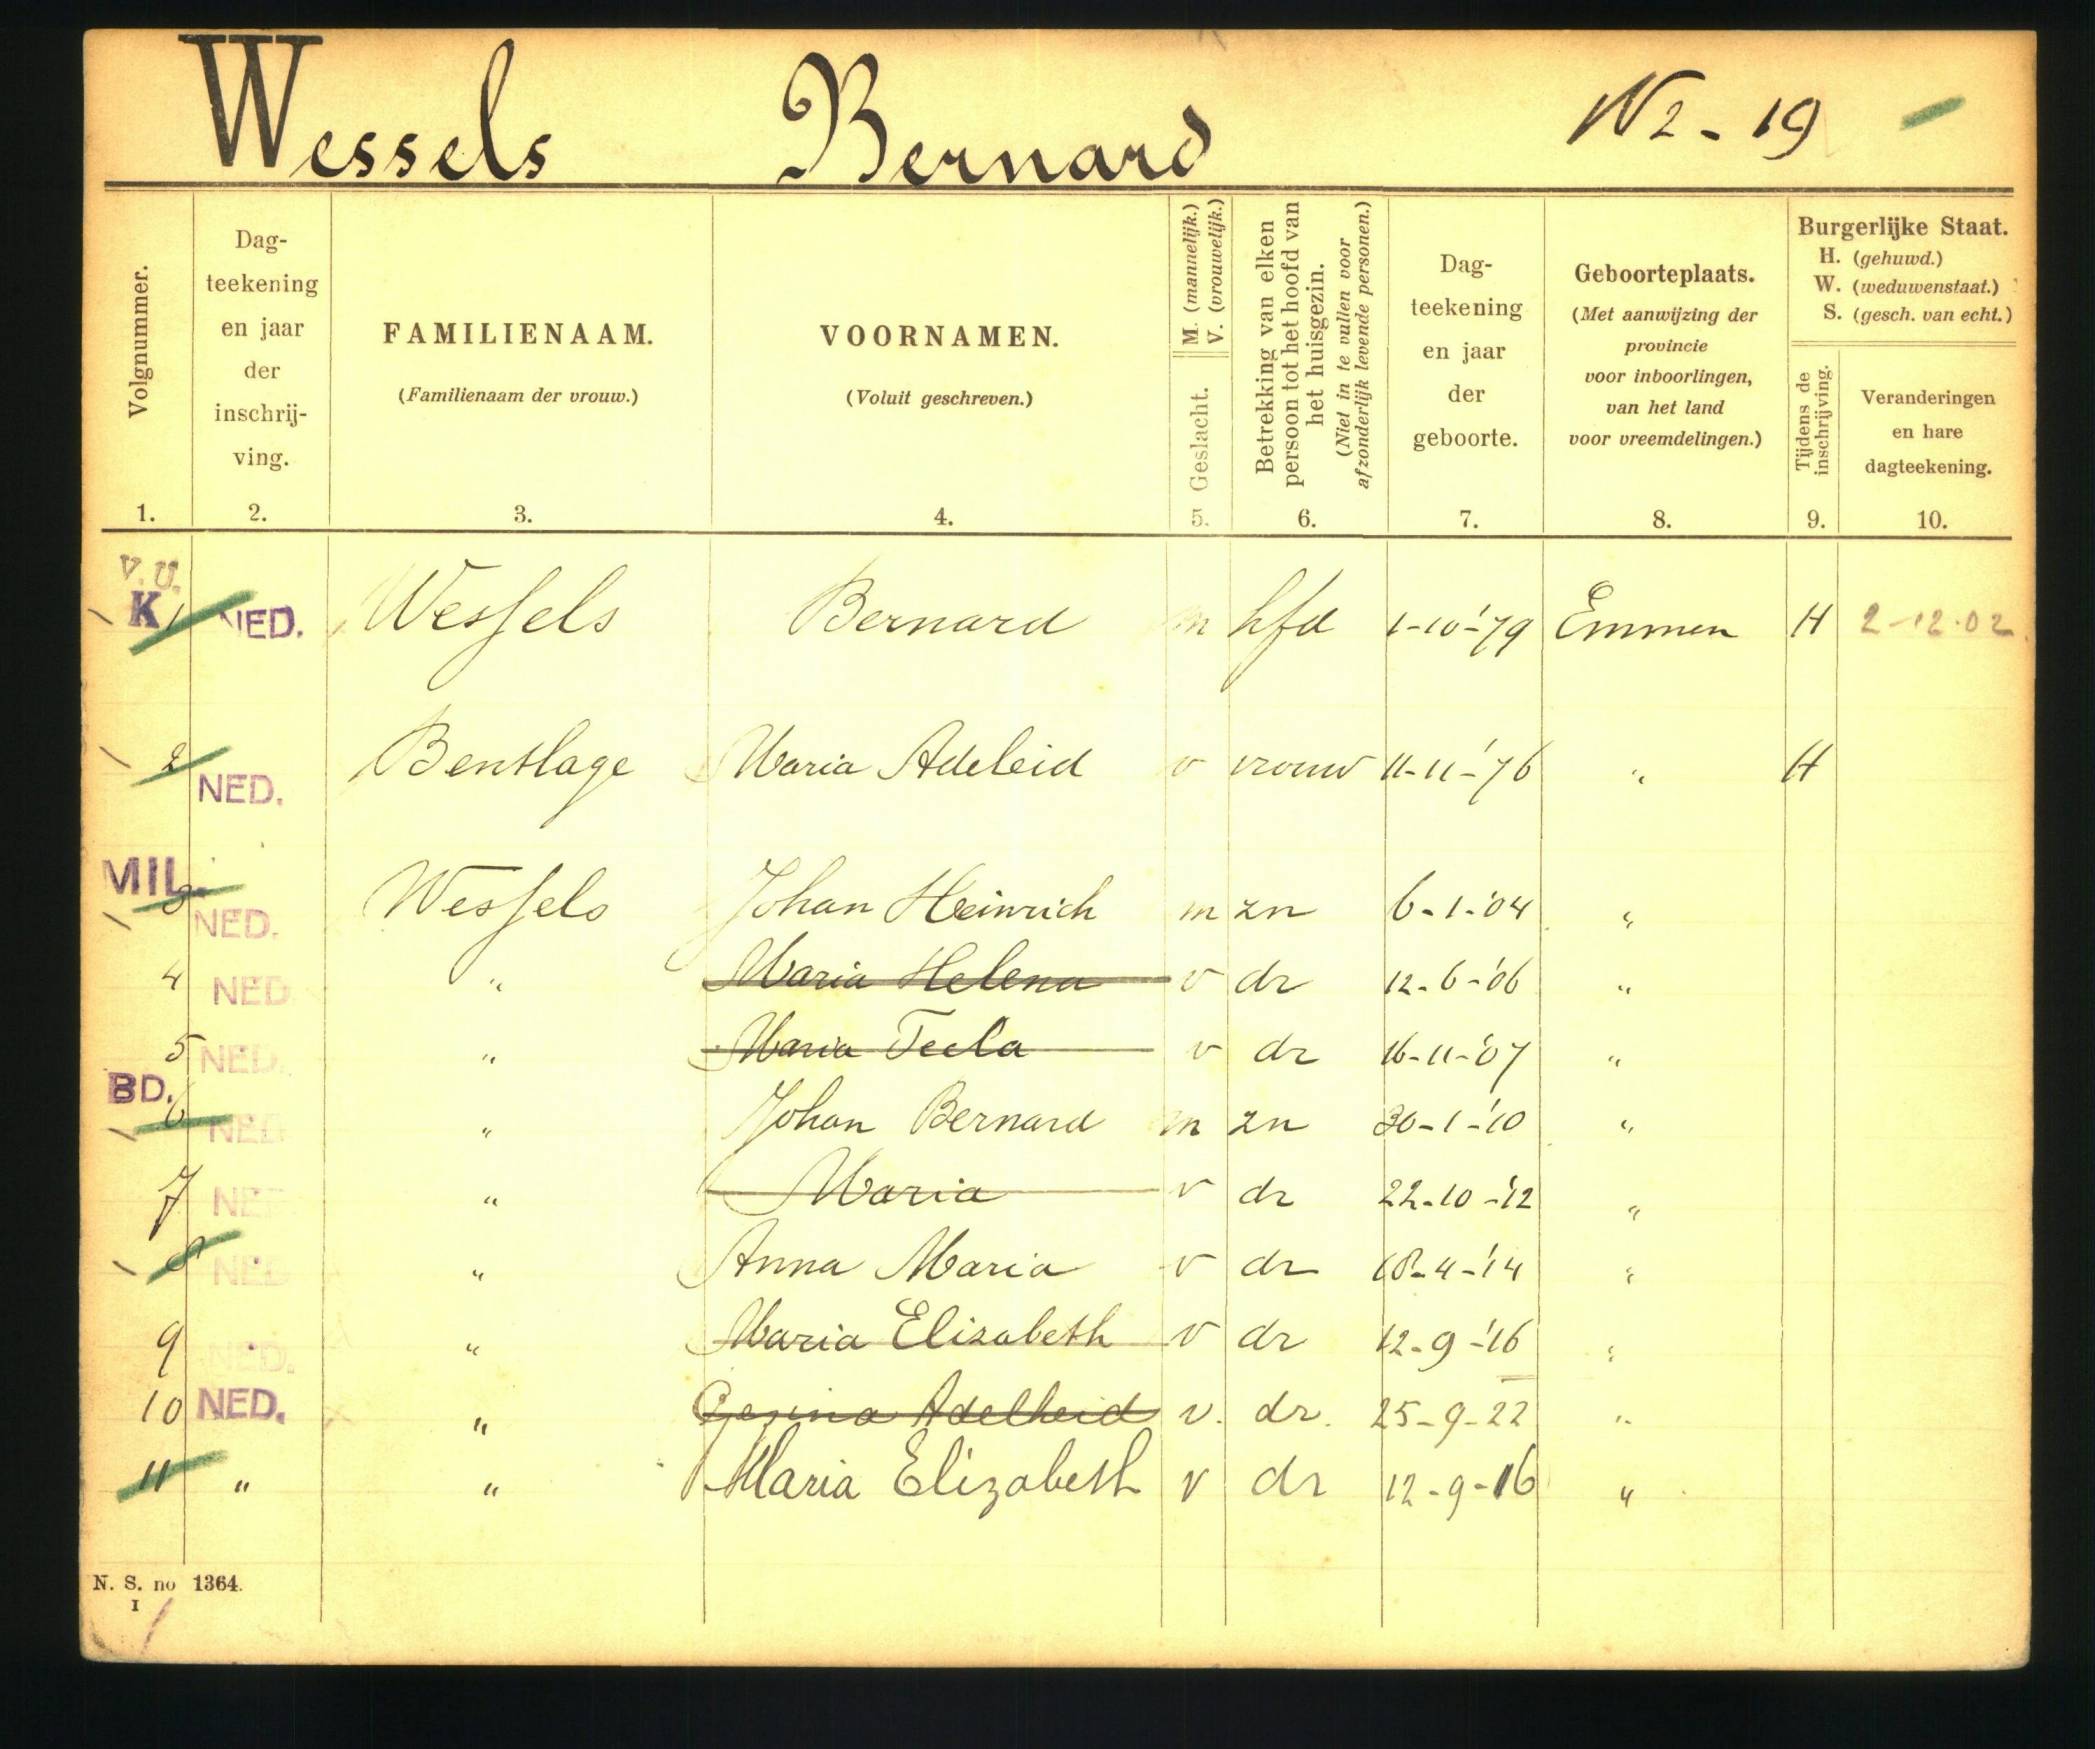 Wessels Bernard W2-19
Volgnummer. 1.
Dag-
teekening
en jaar
der
inschrij-
ving.
2.
FAMILIENAAM.
(Familienaam der vrouw.)
3.
VOORNAMEN.
(Voluit geschreven.)
4.
M. (mannelijk.)
V. (vrouwelijk.)
Geslacht.
5.
Betrekking van elken
persoon tot het hoofd van
het huisgezin.
(Niet in te vullen voor
afzonderlijk levende personen.)
6.
Dag-
teekening
en jaar
der
geboorte.
7.
Geboorteplaats.
(Met aanwijzing der
provincie
voor inboorlingen,
van het land
voor vreemdelingen.)
8.
Burgerlijke Staat.
H. (gehuwd.)
W. (weduwenstaat.)
S. (gesch. van echt.)
Tijdens de
inschrijving.
9.
Veranderingen
en hare
dagteekening.
10.
V.U.
K 1 NED. Wessels Bernard m hfd 1-10-'79 Emmen H 2-12-02
2 NED. Bentlage Maria Adeleid v vrouw 11-11-'76 " H
MIL.
3 NED. Wessels Johan Heinrich m zn 6-1-'04 "
4 NED " Maria Helena v dr 12-6-'06 "
5 NED. " Maria Tecla v dr 16-11-'07 "
BD.
6 NED " Johan Bernard m zn 30-1-'10 "
7 NED " Maria v dr 22-10-'12 "
8 NED " Anna Maria v dr 18-4-'14 "
9 NED. " Maria Elisabeth v dr 12-9-'16 "
10 NED. " Gezina Adelheid v. dr. 25-9-22 "
11 " " Maria Elizabeth v dr 12-9-16 "
N. S. no 1364.
I